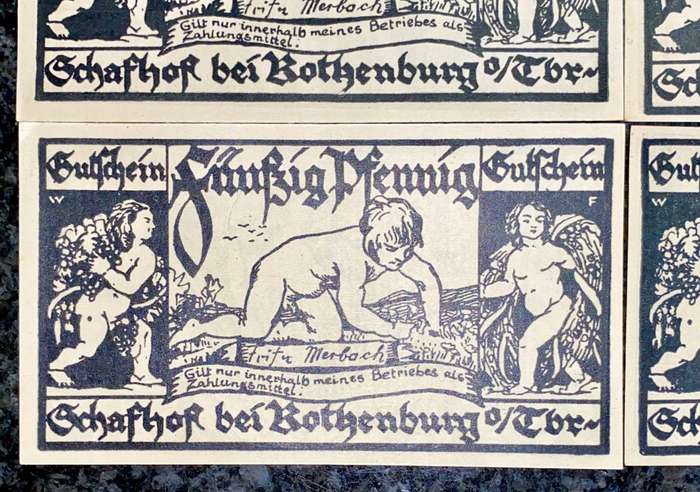 Fritz Merbach
Gilt nur innerhalb meines Betriebes als
Zahlungsmittel.
Schafhof bei Rothenburg o/Tbr
Gutschein Fünfzig Pfennig Gutschein
W F
Fritz Merbach
Gilt nur innerhalb meines Betriebes als
Zahlungsmittel.
Schafhof bei Rothenburg o/Tbr
W